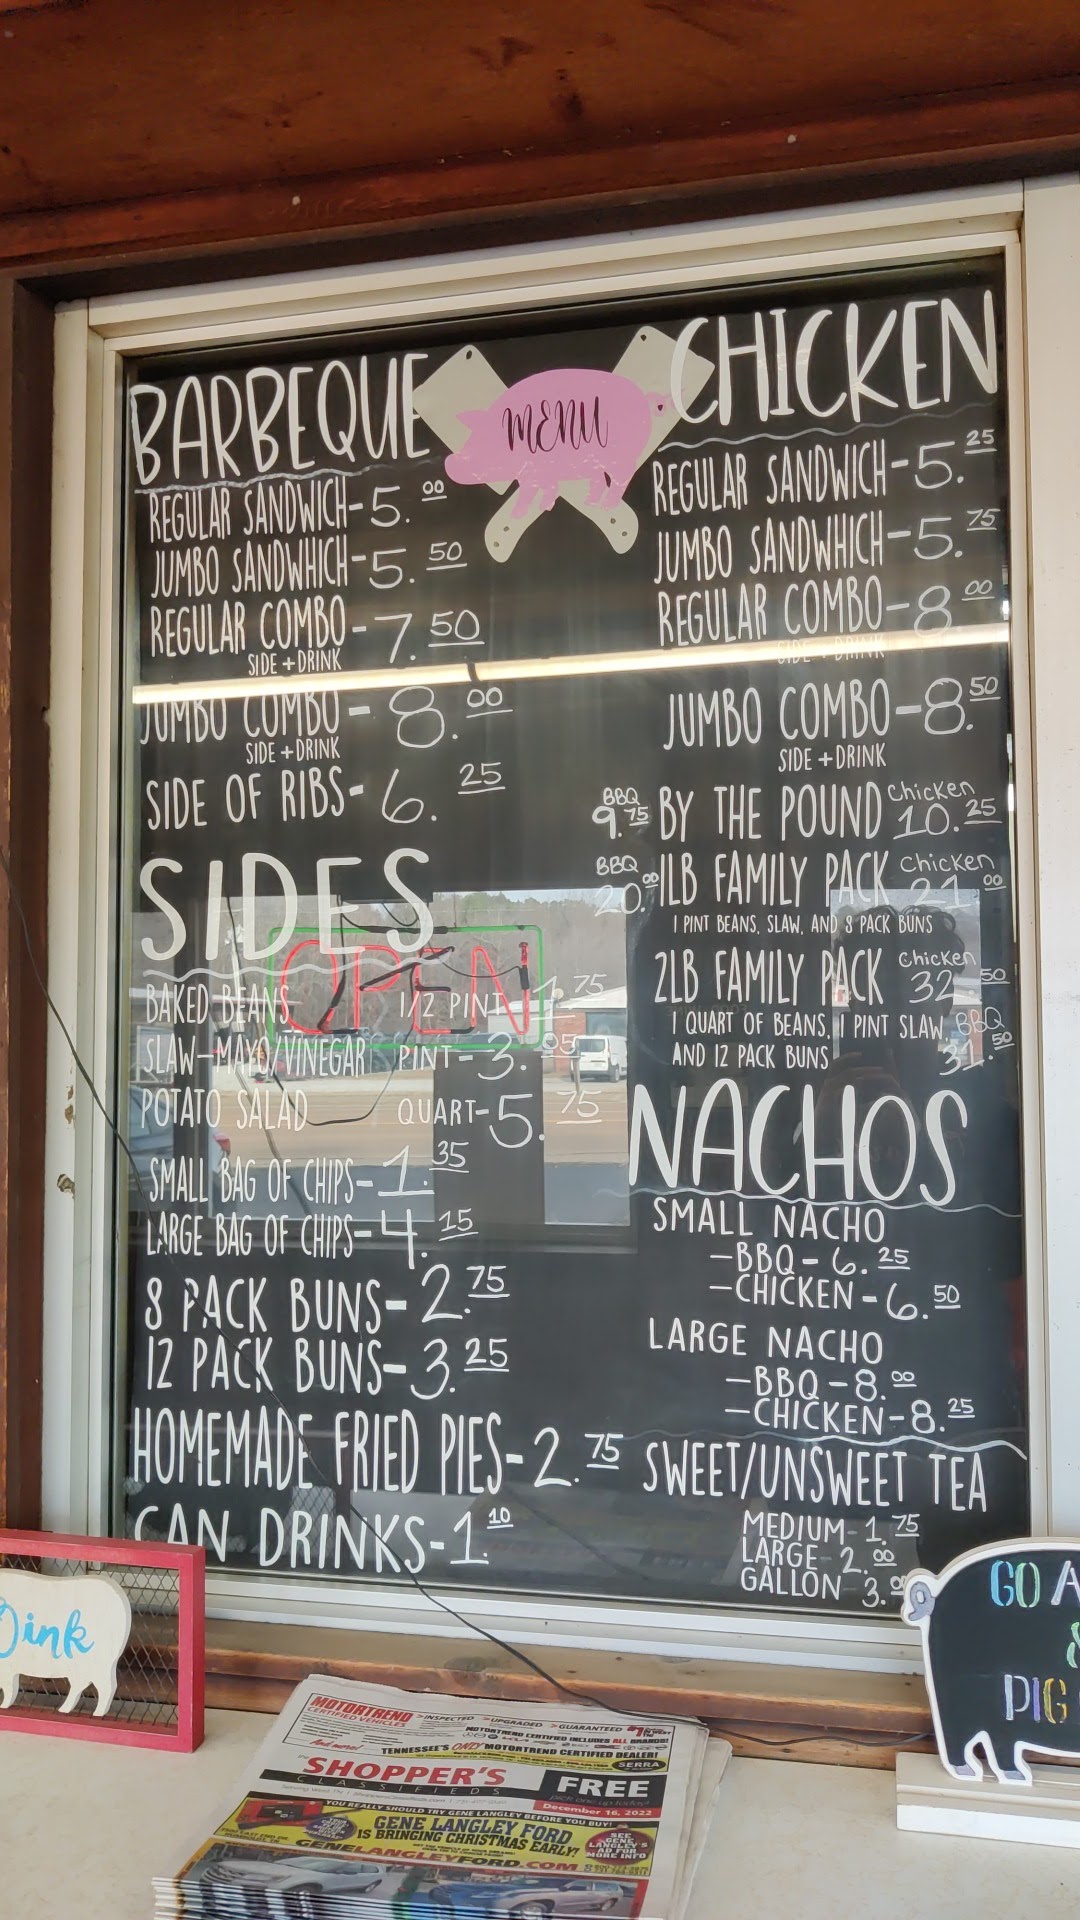 BARBEQUE
REGULAR SANDWICH-5.00
JUMBO SANDWHICH-5.50
REGULAR COMBO-7.50
SIDE+DRINK
JUMBO COMBO-8.00
SIDE+DRINK
SIDE OF RIBS-6.25
SIDES
OPEN
BAKED BEANS 1/2 PINT 1.75
SLAW-MAYO/VINEGAR PINT-3.95
POTATO SALAD QUART-5.75
SMALL BAG OF CHIPS-1.35
LARGE BAG OF CHIPS-4.15
8 PACK BUNS-2.75
12 PACK BUNS-3.25
HOMEMADE FRIED PIES-2.75
CAN DRINKS-1.10
MENU
CHICKEN
REGULAR SANDWICH-5.25
JUMBO SANDWHICH-5.75
REGULAR COMBO-8.00
SIDE+DRINK
JUMBO COMBO-8.50
SIDE+DRINK
BBQ 9.75 BY THE POUND Chicken 10.25
BBQ 20.00 1LB FAMILY PACK Chicken 21.00
1 PINT BEANS, SLAW, AND 8 PACK BUNS
2LB FAMILY PACK Chicken 32.50
1 QUART OF BEANS, 1 PINT SLAW, BBQ
AND 12 PACK BUNS 31.50
NACHOS
SMALL NACHO
-BBQ-6.25
-CHICKEN-6.50
LARGE NACHO
-BBQ-8.00
-CHICKEN-8.25
SWEET/UNSWEET TEA
MEDIUM-1.75
LARGE-2.00
GALLON 3.
Oink
GO
PIG
MOTORTREND
CERTIFIED VEHICLES
>INSPECTED >UPGRADED >GUARANTEED
MOTORTREND CERTIFIED INCLUDES ALL BRANDS!
And more!
TENNESSEE'S ONLY MOTORTREND CERTIFIED DEALER!
SERRA
SHOPPER'S
CLASSIFIEDS
FREE
pick one up today!
December 16, 2022
YOU REALLY SHOULD TRY GENE LANGLEY BEFORE YOU BUY!
GENE LANGLEY FORD
IS BRINGING CHRISTMAS EARLY!
SEE
GENE
LANGLEY'S
AD FOR
MORE INFO
GENELANGLEYFORD.COM